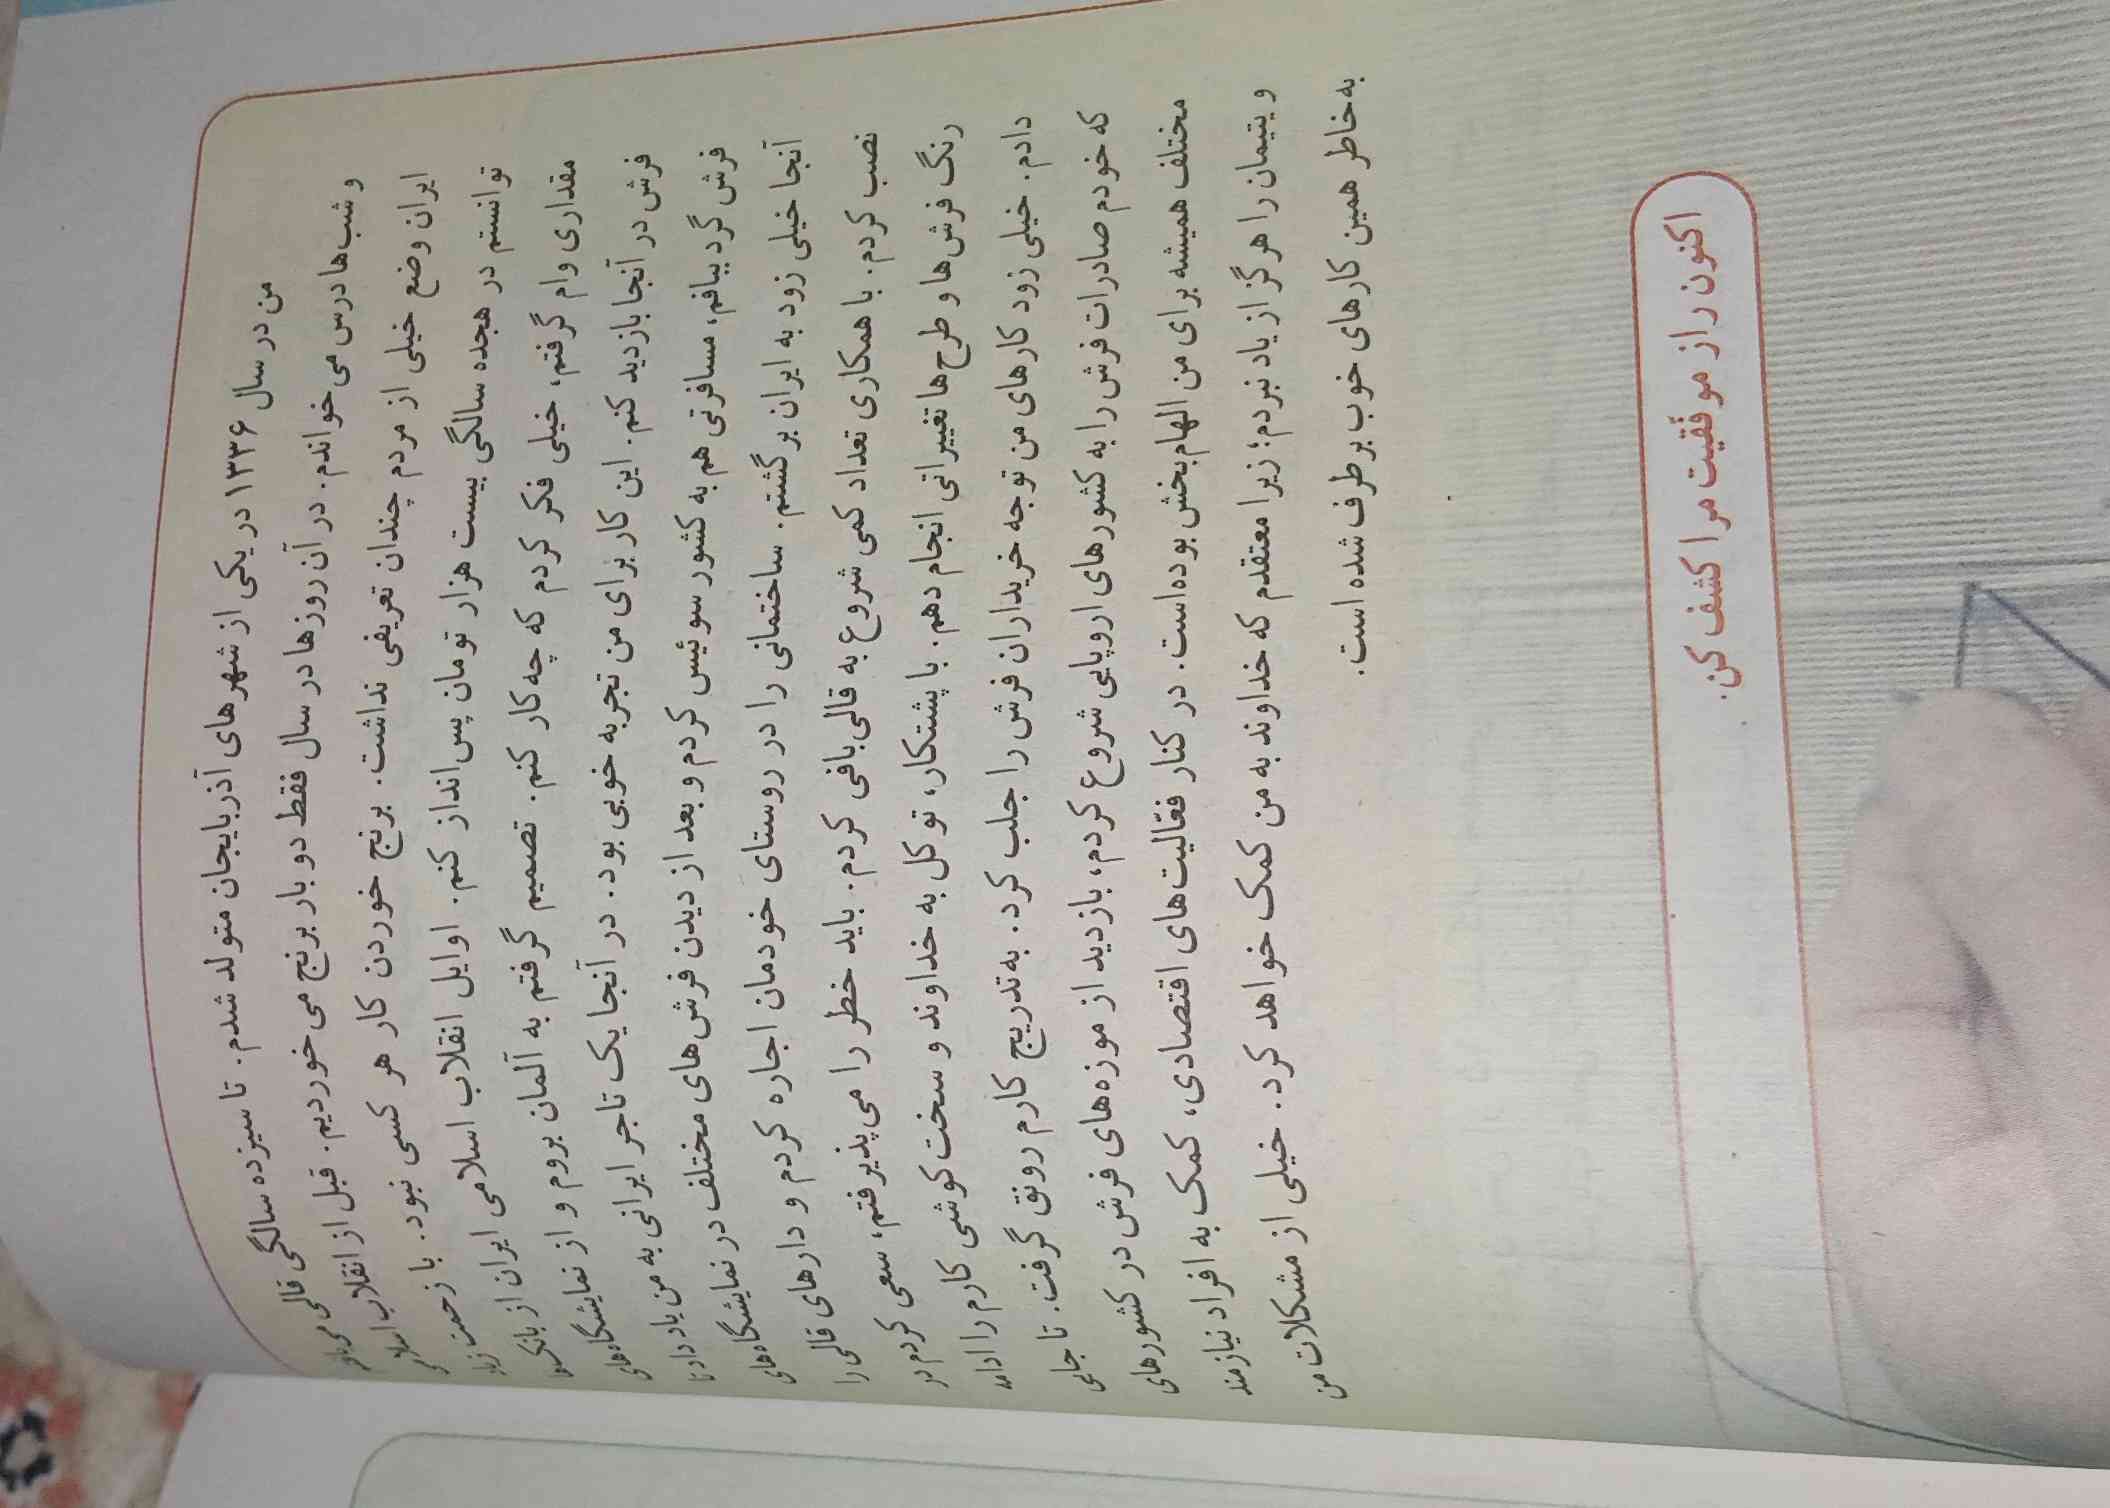 من در سال ۱۳۳۶ در یکی از شهرهای آذربایجان متولد شدم. تا سیزده سالگی قالی می‌بافتم
و شب‌ها درس می‌خواندم. در آن روزها در سال فقط دو بار برنج می‌خوردیم. قبل از انقلاب اسلامی
ایران وضع خیلی از مردم چندان تعریفی نداشت. برنج خوردن کار هر کسی نبود. با زحمت زیاد
توانستم در هجده سالگی بیست هزار تومان پس‌انداز کنم. اوایل انقلاب اسلامی ایران از بانک‌ها
مقداری وام گرفتم، خیلی فکر کردم که چه کار کنم. تصمیم گرفتم به آلمان بروم و از نمایشگاه‌های
فرش در آنجا بازدید کنم. این کار برای من تجربه خوبی بود. در آنجا یک تاجر ایرانی به من یاد داد تا
فرش گرد ببافم، مسافرتی هم به کشور سوئیس کردم و بعد از دیدن فرش‌های مختلف در نمایشگاه‌های
آنجا خیلی زود به ایران برگشتم. ساختمانی را در روستای خودمان اجاره کردم و دارهای قالی را
نصب کردم. با همکاری تعداد کمی شروع به قالی‌بافی کردم. باید خطر را می‌پذیرفتم، سعی کردم در
رنگ فرش‌ها و طرح‌ها تغییراتی انجام دهم. با پشتکار، توکل به خداوند و سخت‌کوشی کارم را ادامه
دادم. خیلی زود کارهای من توجه خریداران فرش را جلب کرد. به‌تدریج کارم رونق گرفت. تا جایی
که خودم صادرات فرش را به کشورهای اروپایی شروع کردم، بازدید از موزه‌های فرش در کشورهای
مختلف همیشه برای من الهام‌بخش بوده است. در کنار فعّالیت‌های اقتصادی، کمک به افراد نیازمند
و یتیمان را هرگز از یاد نبردم؛ زیرا معتقدم که خداوند به من کمک خواهد کرد. خیلی از مشکلات من
به‌خاطر همین کارهای خوب برطرف شده است.
اکنون راز موفّقیت مرا کشف کن.